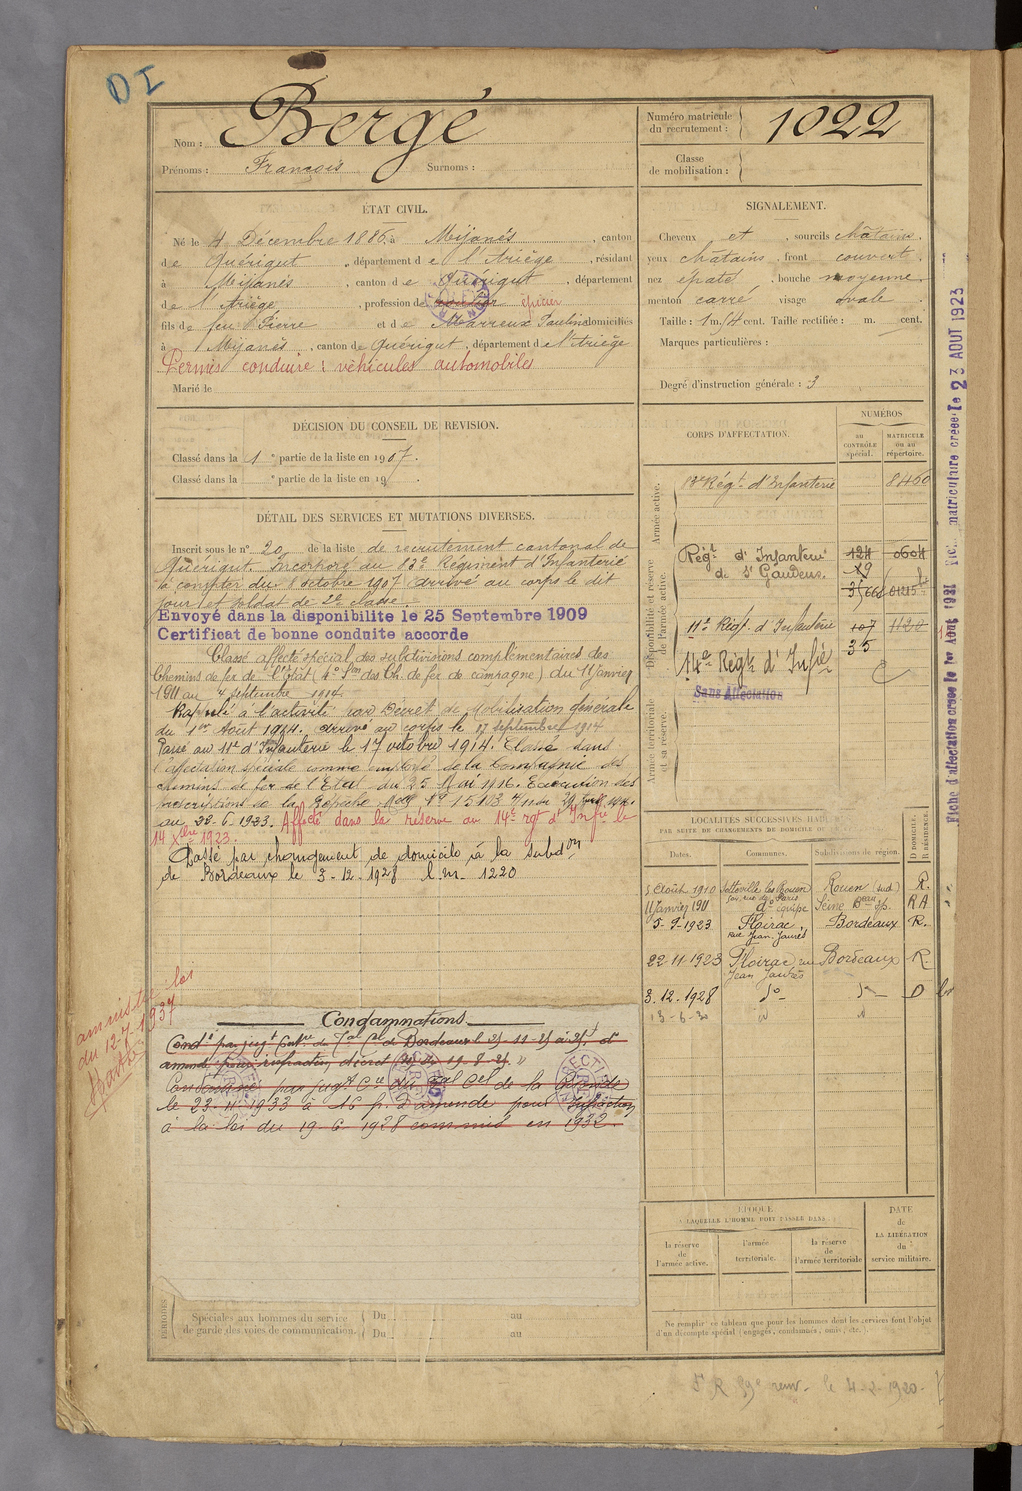 DI
Nom : Bergé
Prénoms : François Surnoms :
Numéro matricule
du recrutement : 1022
Classe
de mobilisation :
ÉTAT CIVIL.
Né le 4 Décembre 1886, à Mijanès, canton
de Quérigut, département de l'Ariège, résidant
à Mijanès, canton de Quérigut, département
de l'Ariège, profession de épicier
fils de feu Pierre et de Marreux Pauline domiciliés
à Mijanès, canton de Quérigut, département de l'Ariège
Permis conduire : véhicules automobiles
Marié le
SIGNALEMENT.
Cheveux et, sourcils châtains,
yeux châtains, front couvert,
nez épaté, bouche moyenne
menton carré visage ovale
Taille : 1 m. 54 cent. Taille rectifiée : m. cent.
Marques particulières :
Degré d'instruction générale : 3
DÉCISION DU CONSEIL DE REVISION.
Classé dans la 1e partie de la liste en 1907.
Classé dans la e partie de la liste en 19 .
DÉTAIL DES SERVICES ET MUTATIONS DIVERSES.
Inscrit sous le n° 20 de la liste de recrutement cantonal de
Quérigut. Incorporé au 83e Régiment d'Infanterie
à compter du 8 octobre 1907 arrivé au corps le dit
jour et soldat de 2e classe.
Envoyé dans la disponibilite le 25 Septembre 1909
Certificat de bonne conduite accorde
Classé affecté spécial des subdivisions complémentaires des
Chemins de fer de l'État (4e Son des Ch. de fer de campagne) du 11 Janvier
1911 au 4 septembre 1914.
Rappelé à l'activité par Décret de Mobilisation générale
du 1er Août 1914. arrivé au corps le 17 septembre 1914
Passé au 11e d'Infanterie le 17 octobre 1914. Classé dans
l'affectation spéciale comme employé de la Compagnie des
chemins de fer de l'Etat du 25 Mai 1916. Exécution des
prescriptions de la Dépêche No 15103
au 22.6.1923. Affecté dans la réserve au 14e rgt d'Infrie le
14 Xbre 1923.
Passé par changement de domicile à la subdon
de Bordeaux le 3-12-1928 l.m. 1220
CORPS D'AFFECTATION.
NUMÉROS
au
CONTRÔLE
spécial.
MATRICULE
ou au
répertoire.
Armée active.
83e Régt d'Infanterie 8460
Disponibilité et réserve
de l'armée active.
Régt d'Infanterie 124 0604
de St Gaudens. 29
11e Régt d'Infanterie 107 1120
14e Régt d'Infie 35
Sans Affectation
Armée territoriale
et sa réserve.
LOCALITÉS SUCCESSIVES HAB
PAR SUITE DE CHANGEMENTS DE DOMICILE OU DE
Dates. Communes. Subdivisions de région. D DOMICILE. R RÉSIDENCE.
5 Août 1910 Sotteville les Rouen Rouen (sud) R.
11 Janvier 1911 do équipe Seine R A
5-9-1923 Floirac, Bordeaux R.
Rue Jean-Jaurès
22-11-1923 Floirac rue Bordeaux R.
Jean Jaurès
3.12.1928 do do D
13-6-30 id id
amnistie loi
du 12-7-1937
Condamnations
Condé par jugt du Tal de Bordeaux
Condamné par jugt Cel du Tal Cel de la
le 23-11-1933 à 16 f. d'amende pour infraction
à la loi du 19-6-1928 commis en 1932.
ÉPOQUE
À LAQUELLE L'HOMME DOIT PASSER DANS :
la réserve
de
l'armée active.
l'armée
territoriale.
la réserve
de
l'armée territoriale
DATE
de
LA LIBÉRATION
du
service militaire.
PÉRIODES
Spéciales aux hommes du service
de garde des voies de communication.
Du au
Du au
Ne remplir ce tableau que pour les hommes dont les services font l'objet
d'un décompte spécial (engagés, condamnés, omis, etc.).
le 4-2-1920
Fiche d'affectation créée le 1er Août 1921
matriculaire créée le 23 AOUT 1923